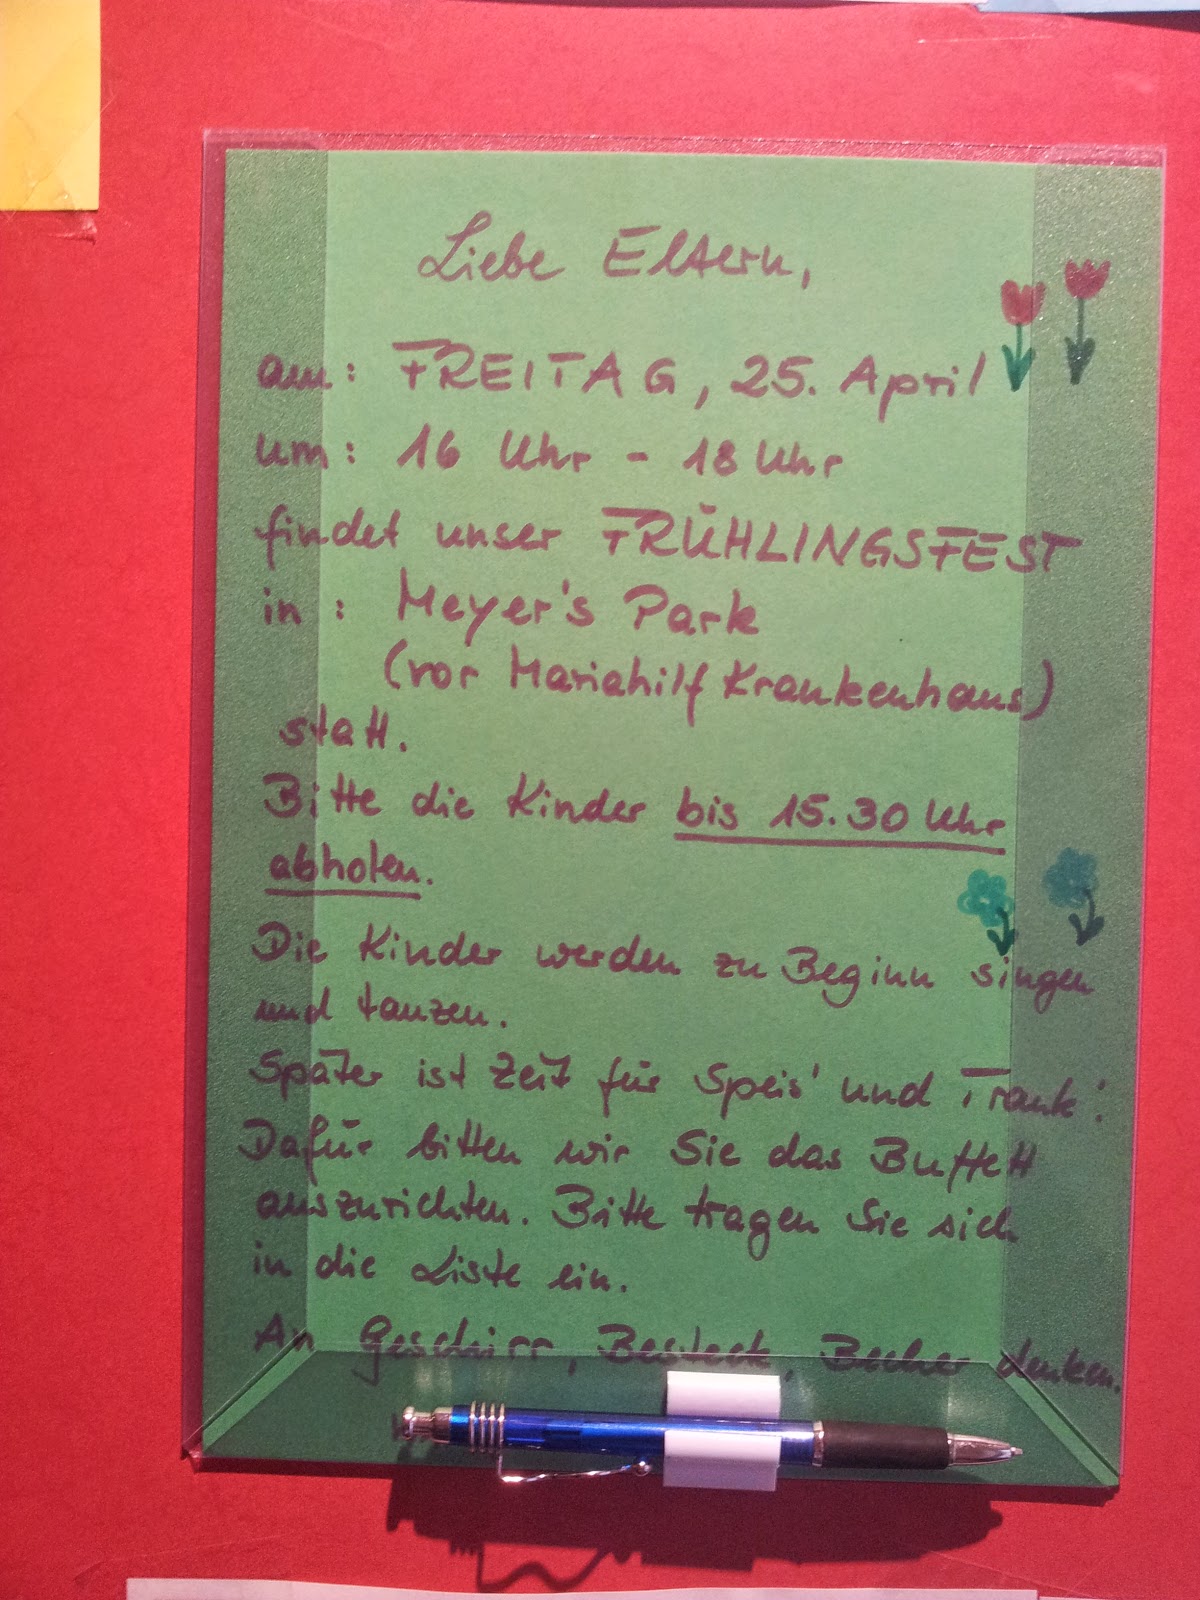 Liebe Eltern,
am: FREITAG, 25. April
um: 16 Uhr - 18 Uhr
findet unser FRÜHLINGSFEST
in: Meyer's Park
(vor Mariahilf Krankenhaus)
statt.
Bitte die Kinder bis 15.30 Uhr
abholen.
Die Kinder werden zu Beginn singen
und tanzen.
Später ist Zeit für Speis' und Trank'.
Dafür bitten wir Sie das Buffett
auszurichten. Bitte tragen Sie sich
in die Liste ein.
An Geschirr, Besteck, Becher denken.